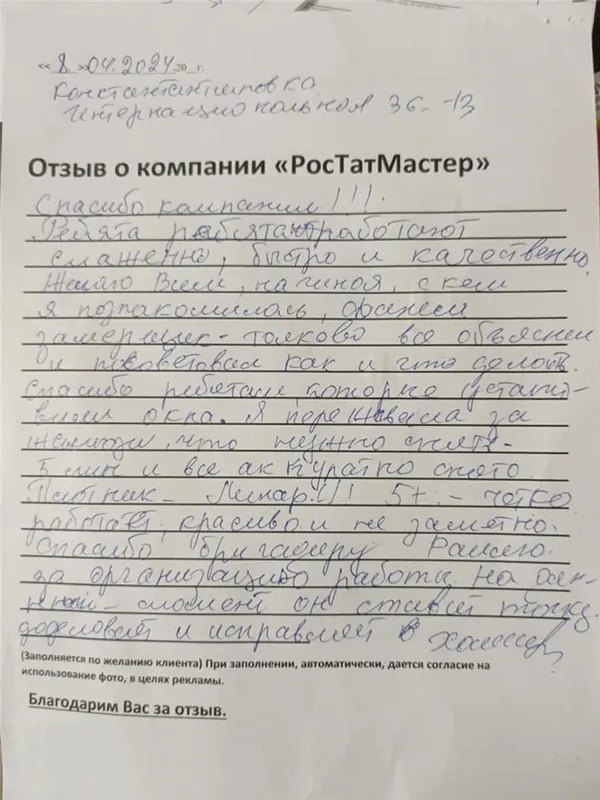 «8.»04.2024.20 г.
Константиновка
Интернациональная 36-13
Отзыв о компании «РосТатМастер»
Спасибо компании!!!.
Ребята работают
слаженно, быстро и качественно.
Желаю Всем, начиная, с кем
я познакомилась,
замерщик - толково все объяснил
и посоветовал как и что делать.
Спасибо ребятам, которые устано-
вили окна. Я переживала за
жалюзи, что нужно снять -
5 мин и все аккуратно снято.
Плотник - Линар!!! 5+ - четко
работает, красиво и не заметно.
Спасибо бригадиру
за организацию работы. На
момент он ставит точку.
доделовает и исправляет
(Заполняется по желанию клиента) При заполнении, автоматически, дается согласие на
использование фото, в целях рекламы.
Благодарим Вас за отзыв.